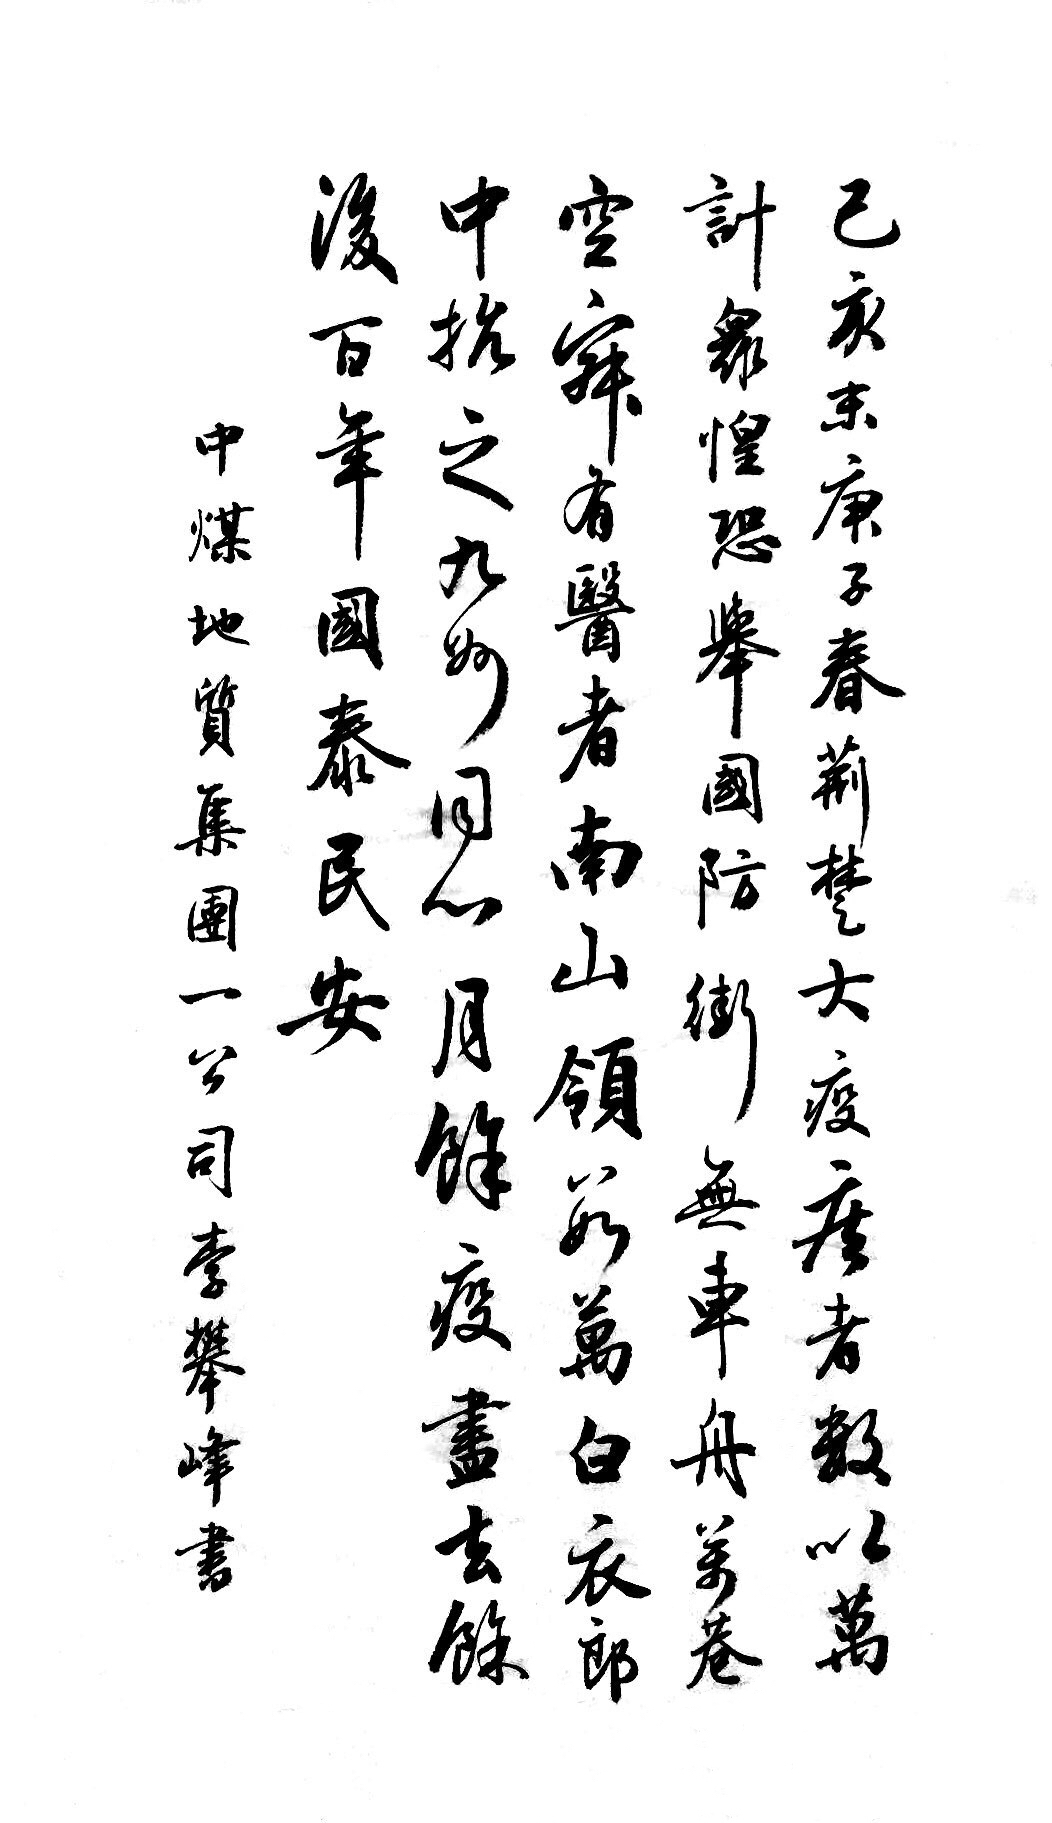 己亥末庚子春荊楚大疫疾者数以萬
計衆惶恐舉國防街無車舟萬巷
空寂有醫者南山領若萬白衣郎
中抗之九州同心月餘疫盡去餘
後百年國泰民安
中煤地質集團一公司李攀峰書